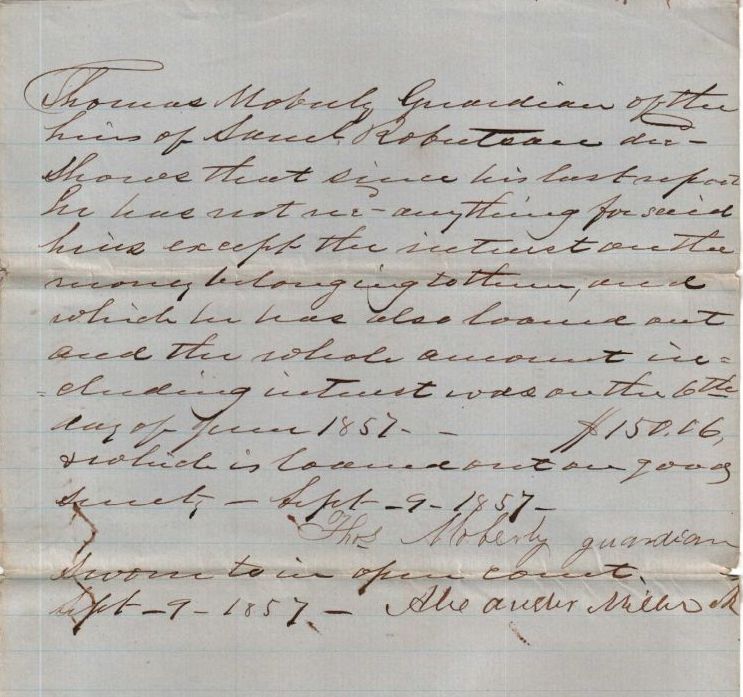 Thomas Moberly Guardian of the
heirs of Saml. Robertson dec-
Shows that since his last report
he has not rec- anything for said
heirs except the interest on the
money belonging to them, and
which he has also loaned out
and the whole amount in=
=cluding interest was on the 6th
day of June 1857 - - $150.06,
& which is loaned out on good
surety - Sept - 9 - 1857 -
Thos Moberly guardian
Sworn to in open court.
Sept - 9 - 1857 - Alexander Miller